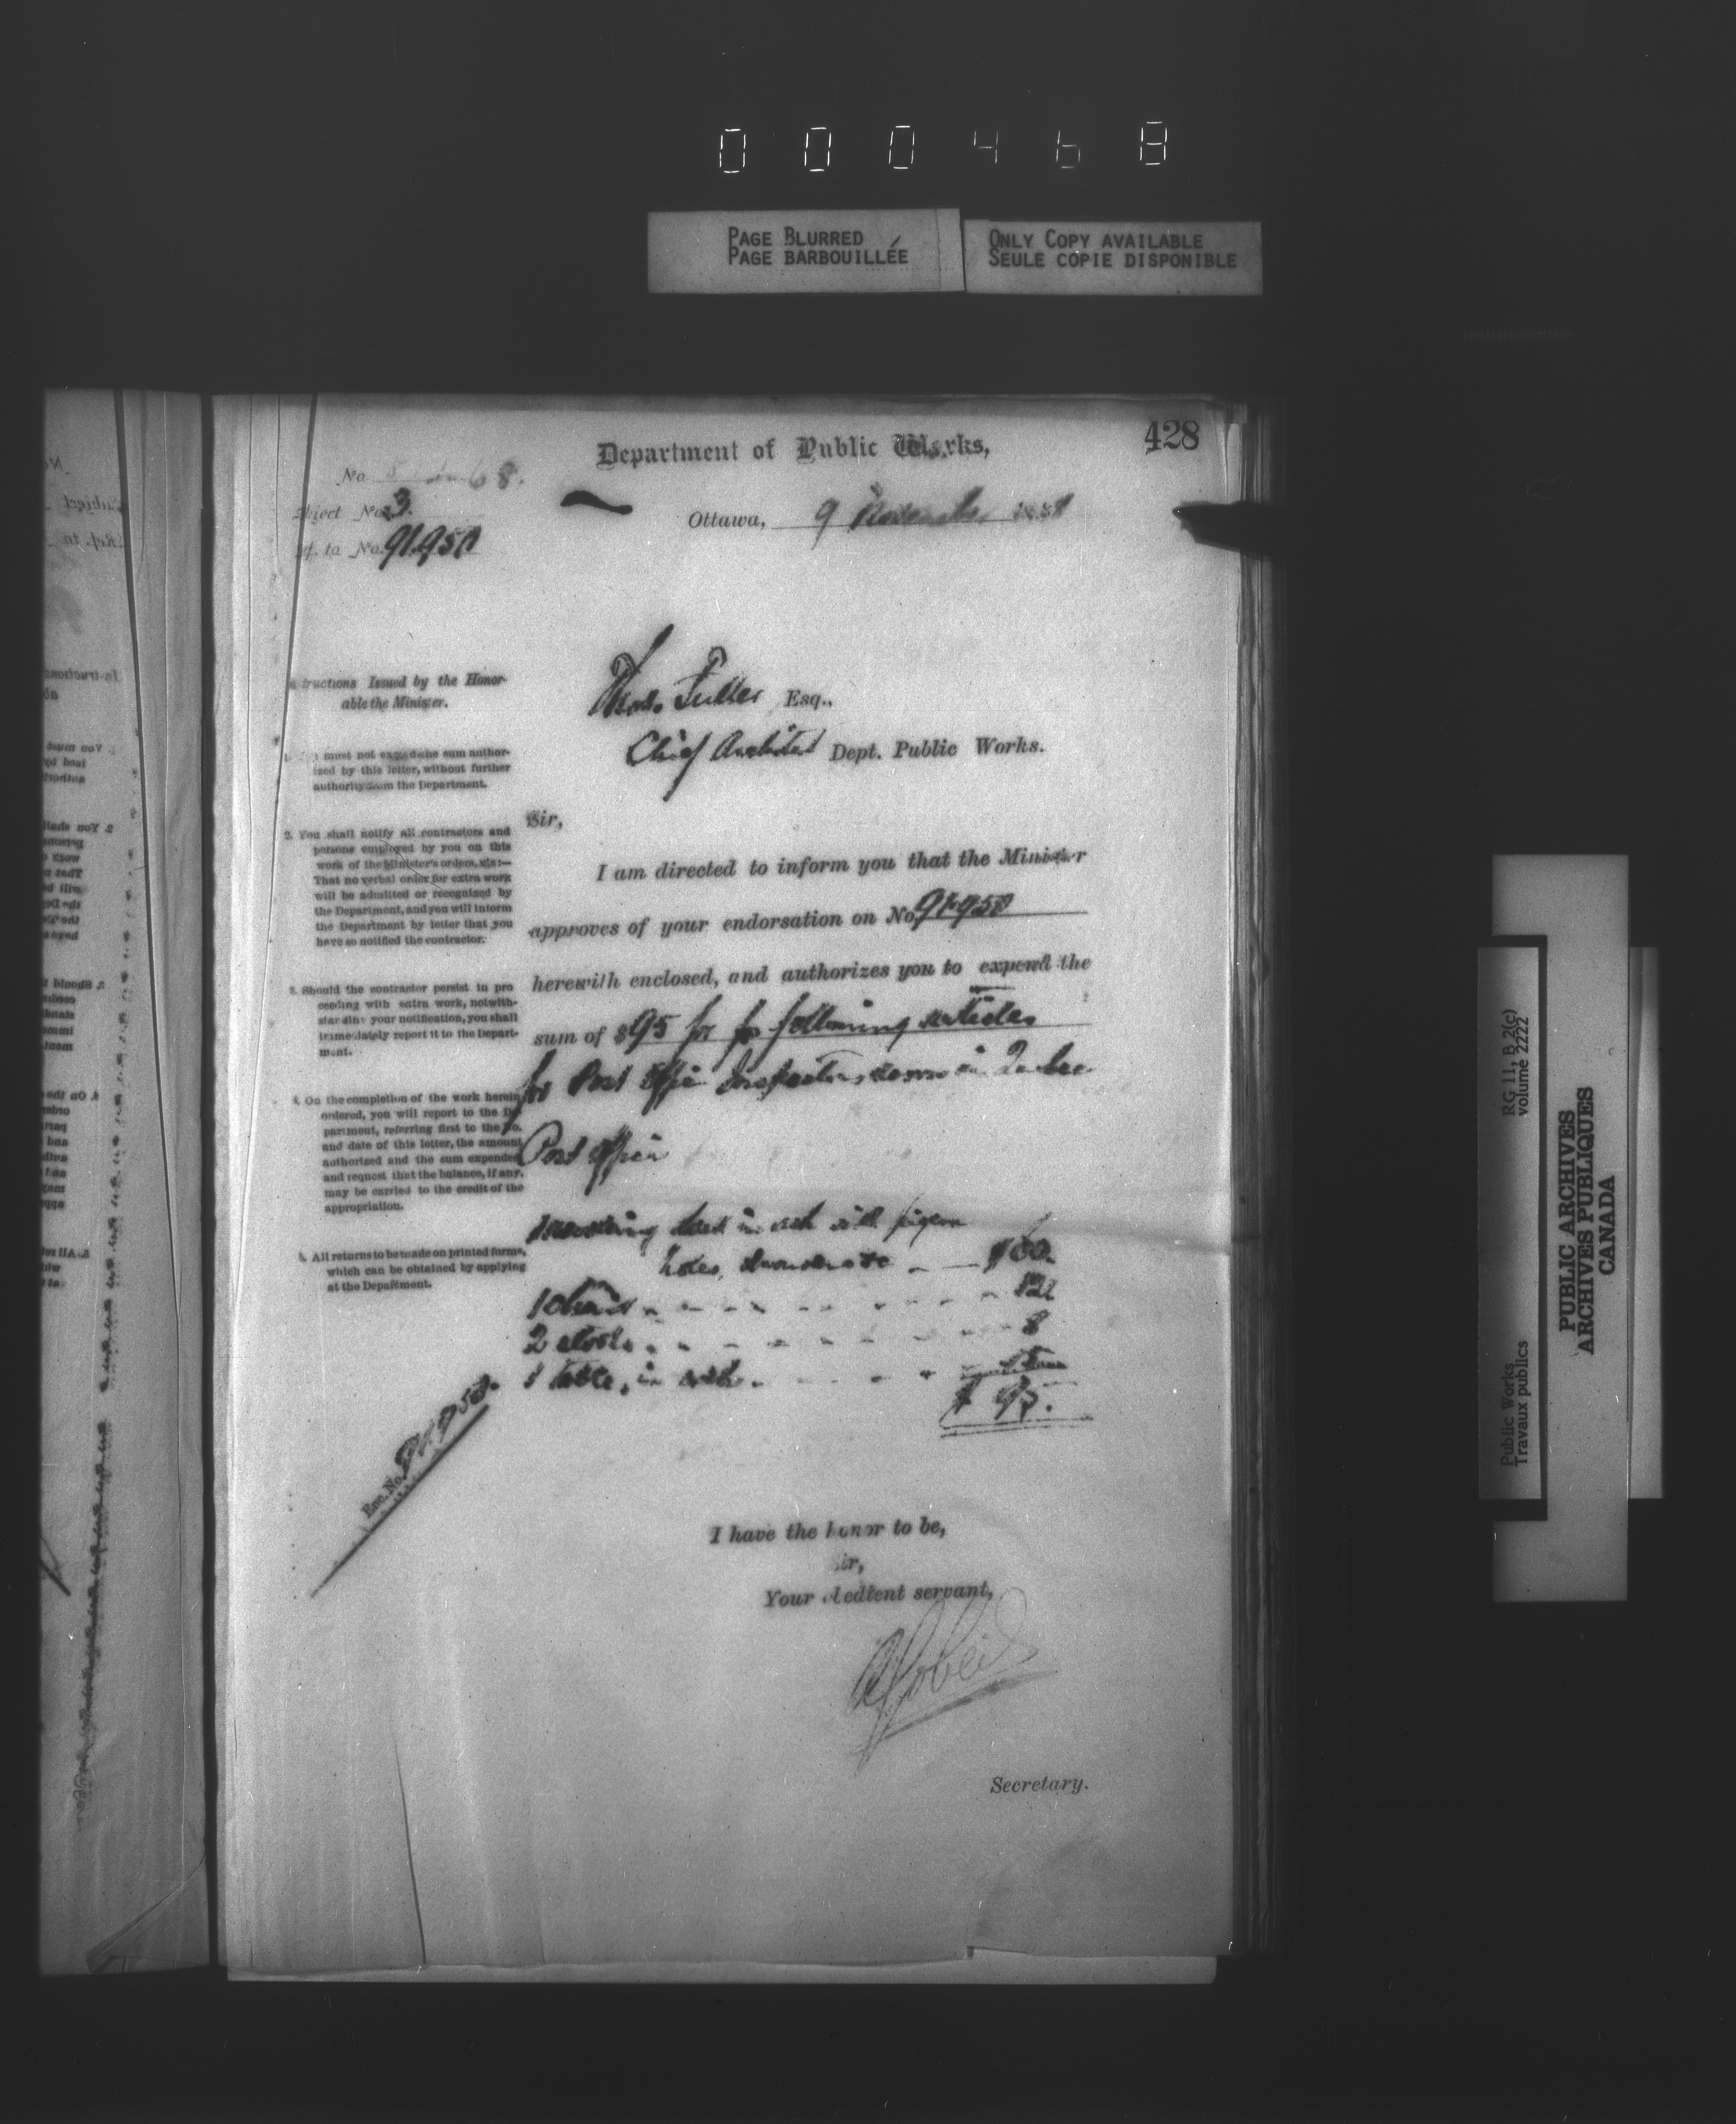 000468
PAGE BLURRED
PAGE BARBOUILLÉE
ONLY COPY AVAILABLE
SEULE COPIE DISPONIBLE
428
Department of Public Works,
No 68.
Subject No. 3.
Ref. to No. 91950
Ottawa, 9 November 188
Instructions Issued by the Honor-
able the Minister.
1. You must not exceed the sum author-
ized by this letter, without further
authority from the Department.
2. You shall notify all contractors and
persons employed by you on this
work of the Minister's orders, viz:—
That no verbal order for extra work
will be admitted or recognized by
the Department, and you will inform
the Department by letter that you
have so notified the contractor.
3. Should the contractor persist in pro
ceeding with extra work, notwith-
standing your notification, you shall
immediately report it to the Depart-
ment.
4. On the completion of the work herein
ordered, you will report to the De
partment, referring first to the No.
and date of this letter, the amount
authorized and the sum expended
and request that the balance, if any,
may be carried to the credit of the
appropriation.
5. All returns to be made on printed forms,
which can be obtained by applying
at the Department.
Thos. Fuller Esq.,
Chief Architect Dept. Public Works.
Sir,
I am directed to inform you that the Minister
approves of your endorsation on No. 91950
herewith enclosed, and authorizes you to expend the
sum of $95 for following articles
for Post Office Inspector's room in Quebec
Post Office
desk in ash with pigeon
holes, drawers
1 chair 22
2 stools 8
1 table, in ash 5
$ 95.
Enc. No. 91950.
I have the honor to be,
Sir,
Your obedient servant,
A Gobeil
Secretary.
RG 11, B 2(c)
volume 2222
Public Works
Travaux publics
PUBLIC ARCHIVES
ARCHIVES PUBLIQUES
CANADA